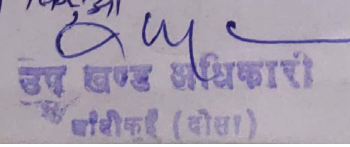 उप खण्ड अधिकारी
बाँदीकुई (दौसा)